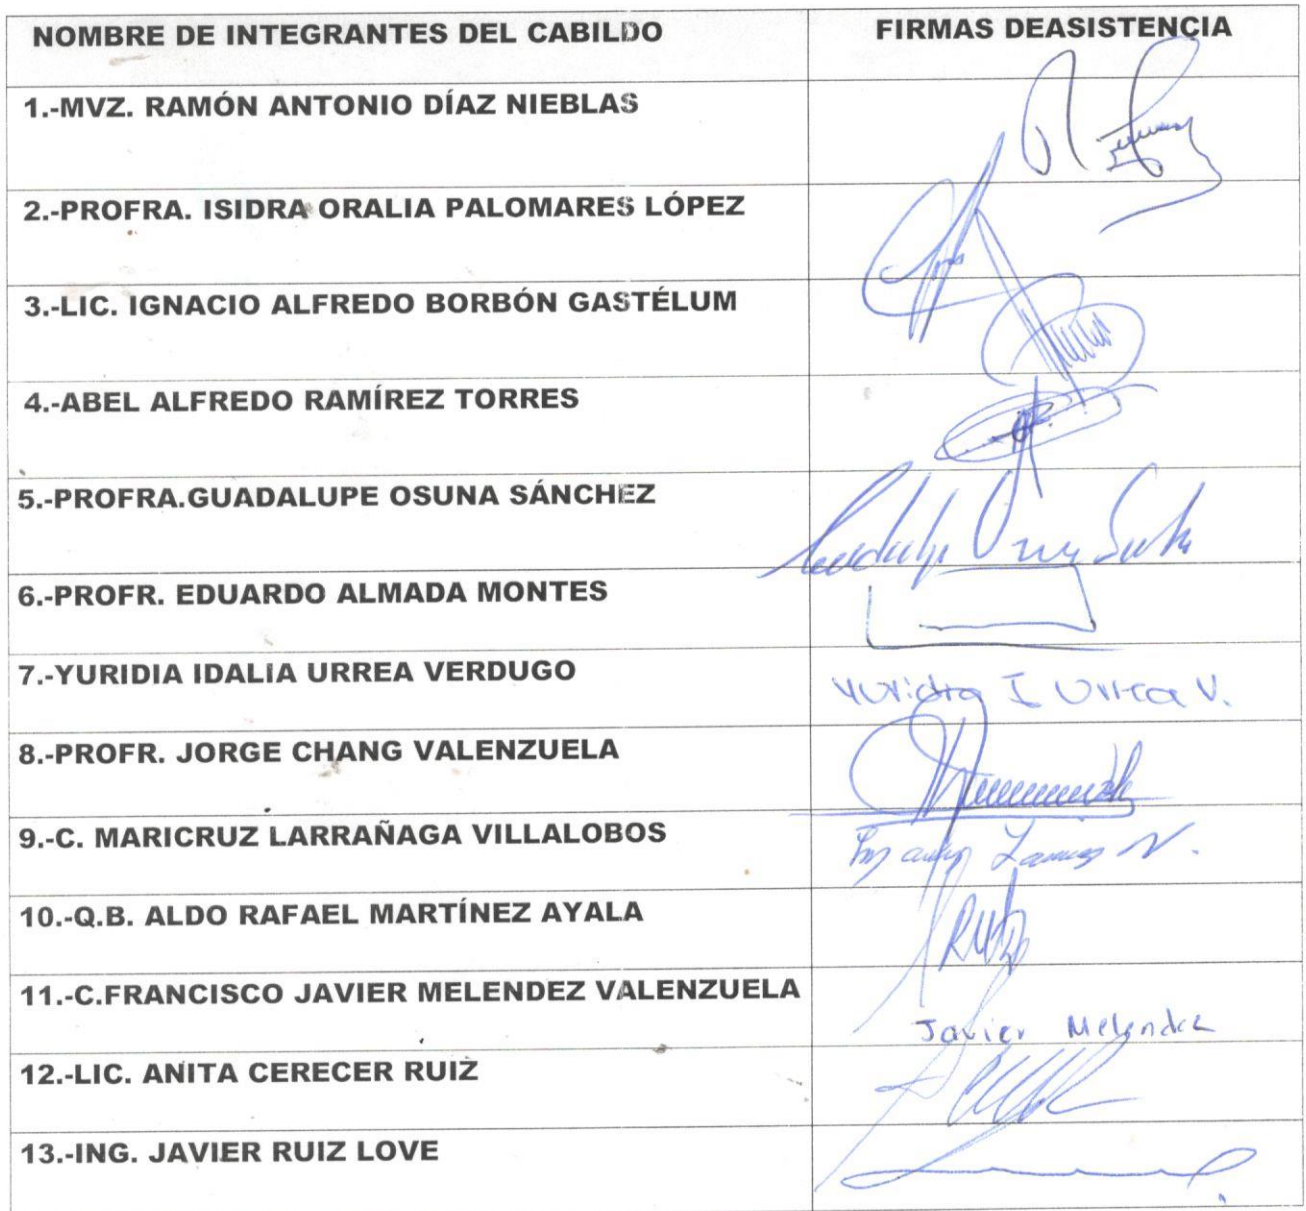 NOMBRE DE INTEGRANTES DEL CABILDO FIRMAS DEASISTENCIA
1.-MVZ. RAMÓN ANTONIO DÍAZ NIEBLAS
2.-PROFRA. ISIDRA ORALIA PALOMARES LÓPEZ
3.-LIC. IGNACIO ALFREDO BORBÓN GASTÉLUM
4.-ABEL ALFREDO RAMÍREZ TORRES
5.-PROFRA.GUADALUPE OSUNA SÁNCHEZ
6.-PROFR. EDUARDO ALMADA MONTES
7.-YURIDIA IDALIA URREA VERDUGO Yuridia I Urrea V.
8.-PROFR. JORGE CHANG VALENZUELA
9.-C. MARICRUZ LARRAÑAGA VILLALOBOS
10.-Q.B. ALDO RAFAEL MARTÍNEZ AYALA
11.-C.FRANCISCO JAVIER MELENDEZ VALENZUELA Javier Melendez
12.-LIC. ANITA CERECER RUIZ
13.-ING. JAVIER RUIZ LOVE